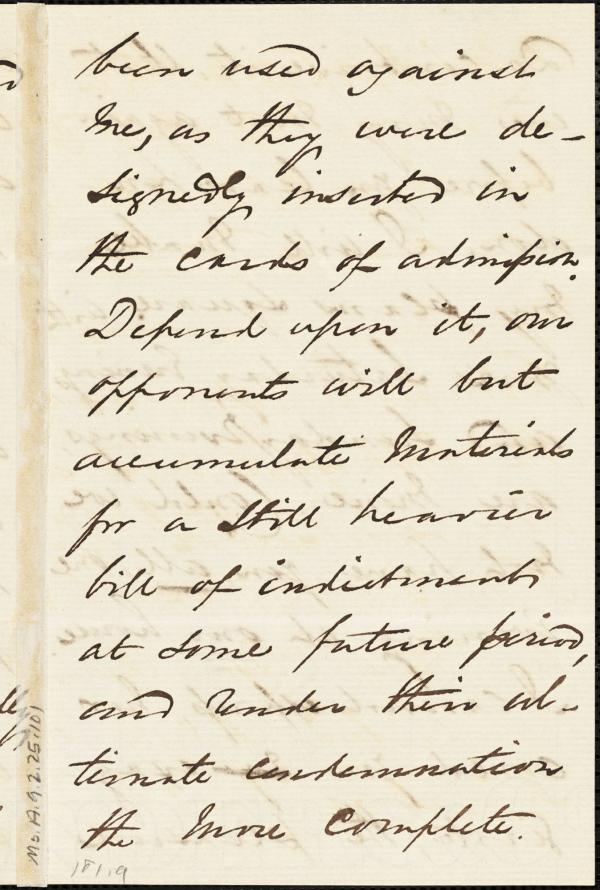 been used against
me, as they were de-
signedly inserted in
the cards of admission.
Depend upon it, our
opponents will but
accumulate materials
for a still heavier
bill of indictments
at some future period,
and render their ul-
timate condemnation
the more complete.
Ms.A.9.2.25.101